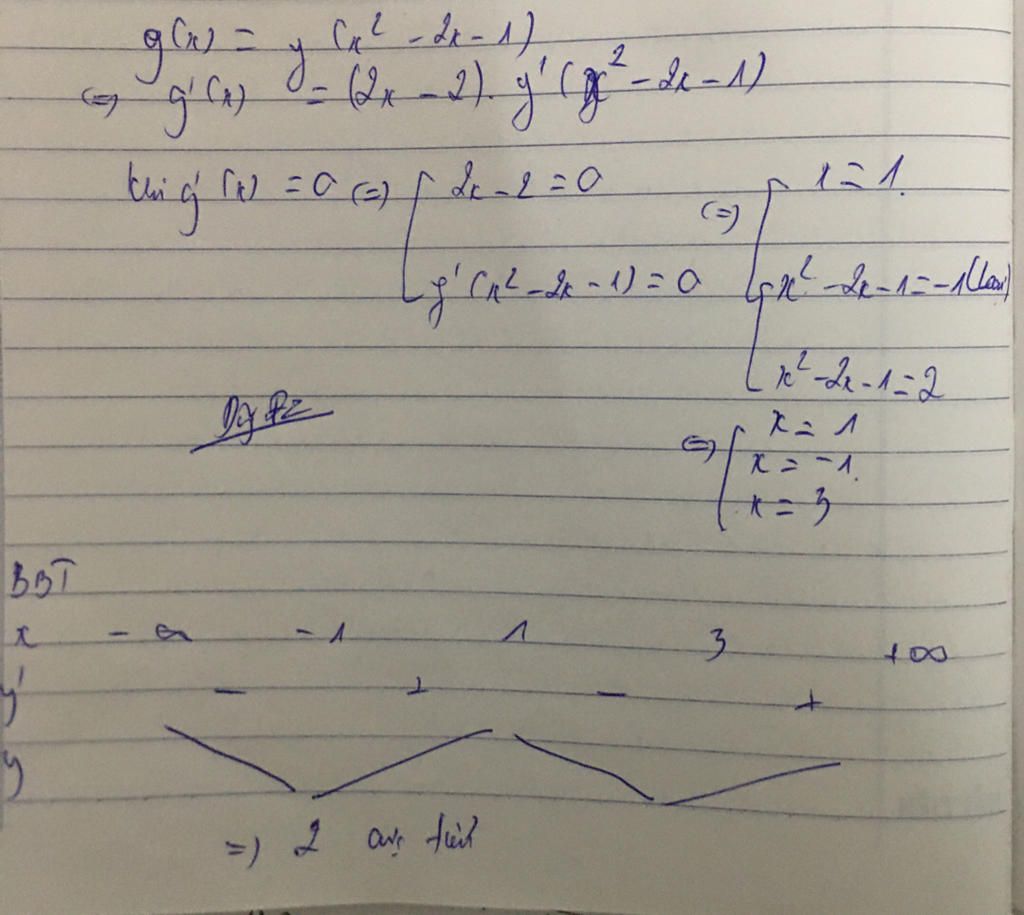 g(x) = y (x² - 2x - 1)
<=> g'(x) = (2x - 2). y' (x² - 2x - 1)
khi g'(x) = 0 <=> [ 2x - 2 = 0 <=> [ 1 = 1.
y' (x² - 2x - 1) = 0 x² - 2x - 1 = -1 (loại)
x² - 2x - 1 = 2
<=> [ x = 1
x = -1.
x = 3
BBT
x -∞ -1 1 3 +∞
y' - + - +
y
=> 2 cực tiểu